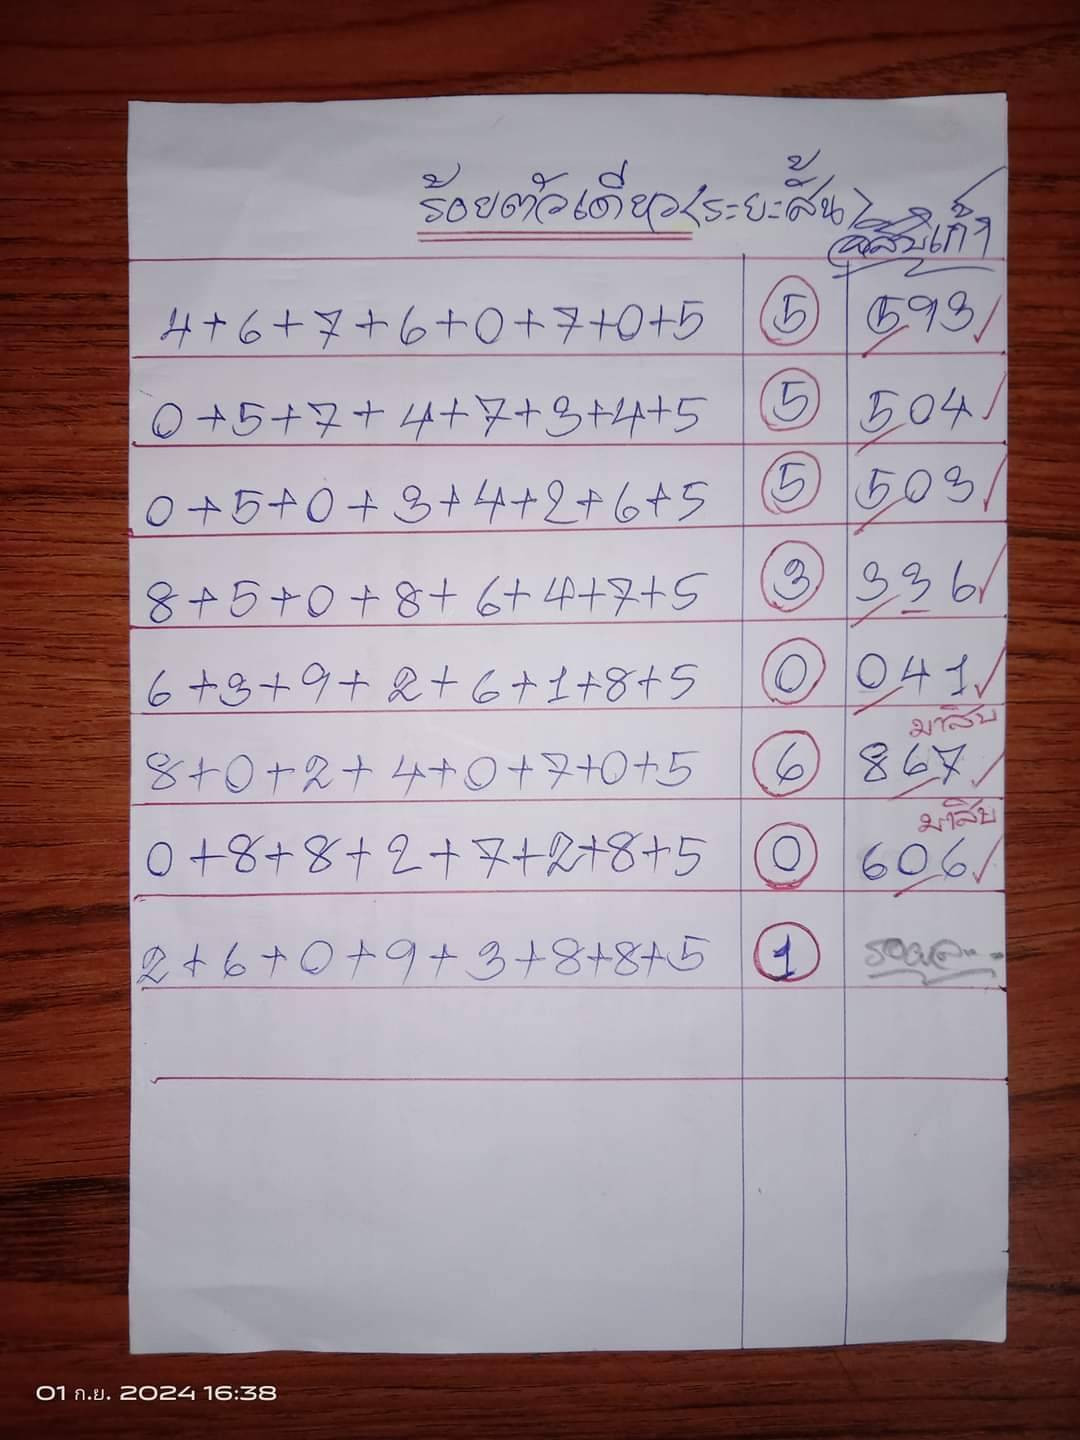 ร้อยตัวเดียว(ระยะสั้น)
4+6+7+6+0+7+0+5 5 593
0+5+7+4+7+3+4+5 5 504
0+5+0+3+4+2+6+5 5 503
8+5+0+8+6+4+7+5 3 336
6+3+9+2+6+1+8+5 0 041
มาสิบ
8+0+2+4+0+7+0+5 6 867
มาสิบ
0+8+8+2+7+2+8+5 0 606
2+6+0+9+3+8+8+5 1
01 ก.ย. 2024 16:38